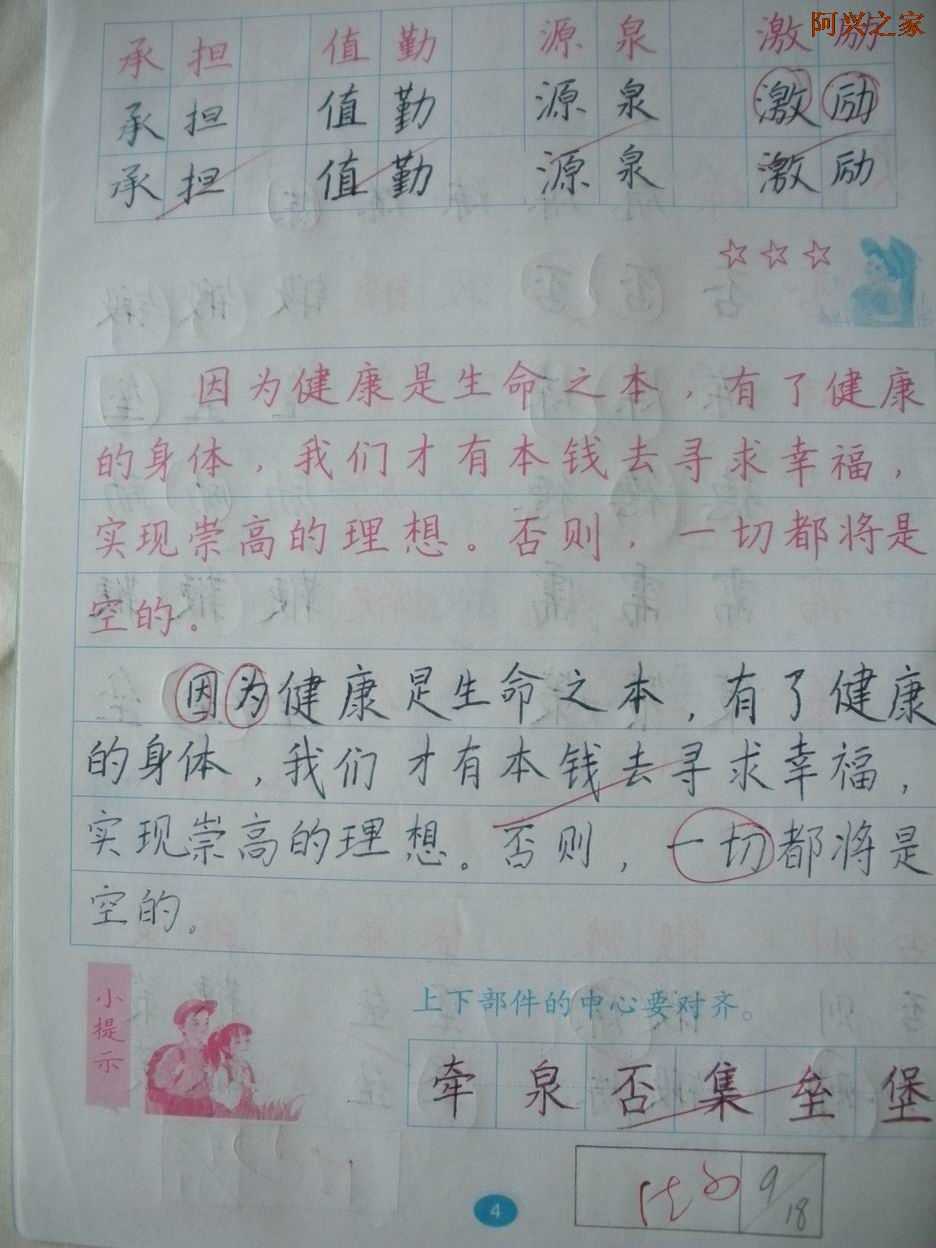 阿兴之家
承担 值勤 源泉 激励
承担 值勤 源泉 激励
承担 值勤 源泉 激励
因为健康是生命之本，有了健康
的身体，我们才有本钱去寻求幸福，
实现崇高的理想。否则，一切都将是
空的。
因为健康是生命之本，有了健康
的身体，我们才有本钱去寻求幸福，
实现崇高的理想。否则，一切都将是
空的。
小提示
上下部件的中心要对齐。
牵泉否集垒堡
9/18
4